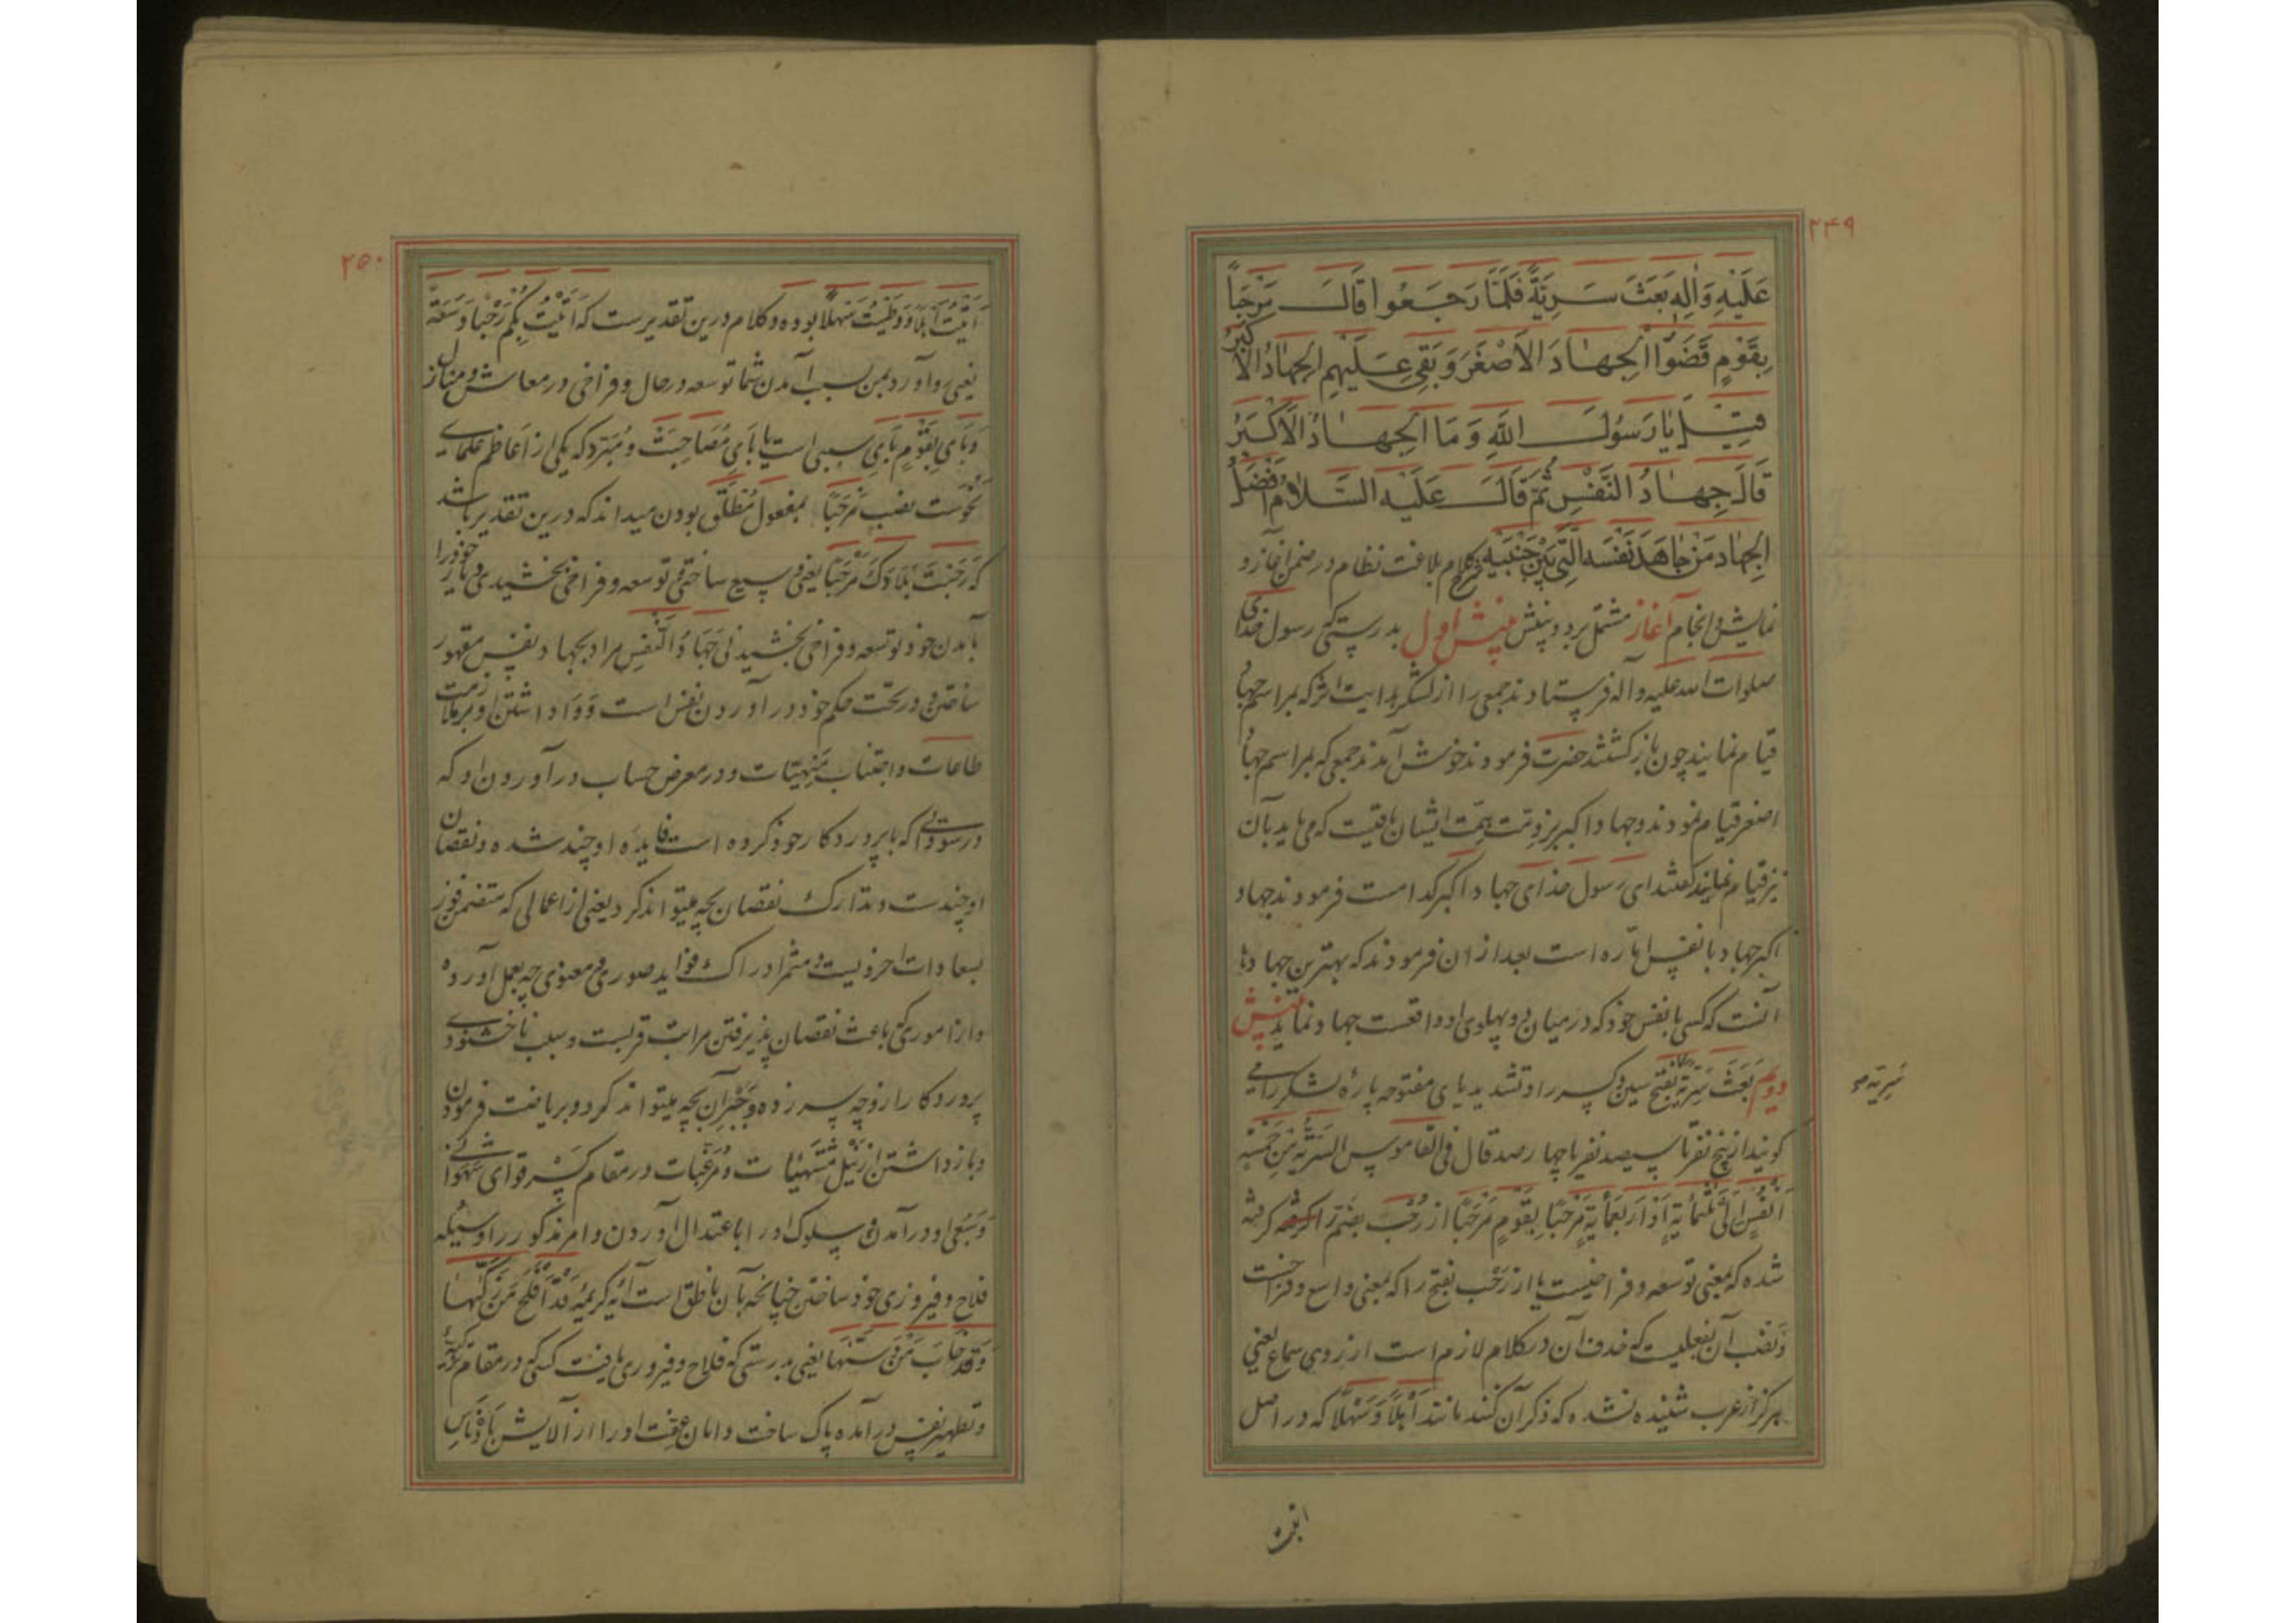 ۲۴۹
عَلَيْهِ وَاٰلِهِ بَعَثَ سَرِيَّةً فَلَمَّا رَجَعُوا قَالَ مَرْحَبًا
بِقَوْمٍ قَضَوُا الْجِهَادَ الْاَصْغَرَ وَ بَقِيَ عَلَيْهِمُ الْجِهَادُ الْاَكْبَرُ
قِيْلَ يَا رَسُولَ اللّٰهِ وَ مَا الْجِهَادُ الْاَكْبَرُ
قَالَ جِهَادُ النَّفْسِ ثُمَّ قَالَ عَلَيْهِ السَّلَامُ اَفْضَلُ
الْجِهَادِ مَنْ جَاهَدَ نَفْسَهُ الَّتِي بَيْنَ جَنْبَيْهِ کلام بلاغت نظام در ضمن آغاز و
نمایش و انجام آغاز مشتمل بر دو بینش بینش اول بدرستی که رسول خدای
صلوات الله علیه و آله فرستادند جمعی را از لشکر هدایت اثر که بمراسم جهاد
قیام نمایند چون بازگشتند حضرت فرمودند خوش آمدند جمعی که بمراسم جهاد
اصغر قیام نمودند و جهاد اکبر بر ذمت همت ایشان باقیست که می باید بآن
نیز قیام نمایند گفتند ای رسول خدای جهاد اکبر کدامست فرمودند جهاد
اکبر جهاد با نفس اماره است بعد از آن فرمودند که بهترین جهادها
آنست که کسی با نفس خود که در میان دو پهلوی او واقعست جهاد نماید بینش
دویم بَعَثَ سَرِیَّةً بفتح سین و کسر را و تشدید یای مفتوحه پارهٔ لشکر را می
سَرِیَّه صح
گویند از پنج نفر تا سیصد نفر یا چهار صد قال فی القاموس السَّرِیَّةُ مِنْ خَمْسَةِ
اَنْفُسٍ اِلٰی ثَلٰثِمِائَةٍ اَوْ اَرْبَعِمِائَةٍ مَرْحَبًا بِقَوْمٍ مَرْحَبًا از رُحْب بضم را گرفته
شده که بمعنی توسعه و فراخیست یا از رَحْب بفتح را که بمعنی واسع و فراخست
و نصب آن بفعلیست که حذف آن در کلام لازم است از روی سماع یعنی
هرگز از عرب شنیده نشده که ذکر آن کنند مانند اَهْلًا وَ سَهْلًا که در اصل
اتیت
۲۵۰
اَتَیْتَ اَهْلًا وَ وَطِئْتَ سَهْلًا بوده و کلام درین تقدیرست که اَتَیْتُ بِکُمْ رُحْبًا وَ سَعَةً
یعنی رو آورد بمن بسبب آمدن شما توسعه در حال و فراخی در معاش و منازل
و بای بِقَوْمٍ بای سببی است یا بای مُصَاحِبَتْ و مُبَرَّد که یکی از اعاظم علمای
نحوست نصب مَرْحَبًا بمفعول مُطْلَق بودن میداند که درین تقدیر باشد
که رَحُبَتْ بِلَادُکَ مَرْحَبًا یعنی وسیع ساختی و توسعه و فراخی بخشیدی دیار خود را
بآمدن خود توسعه و فراخی بخشیدنی جِهَادُ النَّفْسِ مراد بجهاد نفس مقهور
ساختن و در تحت حکم خود درآوردن نفس است و واداشتن او بر ملازمت
طاعات و اجتناب مَنْهِیَّات و در معرض حساب درآوردن او که
در سودائی که با پروردگار خود کرده است فایدهٔ او چند شده و نقصان
او چندست و تدارک نقصان بچه میتواند کرد یعنی از اعمالی که متضمن فوز
بسعادات اخرویست و مثمر ادراک فواید صوری و معنوی چه بعمل آورده
و از اموری که باعث نقصان پذیرفتن مراتب قربست و سبب ناخشنودی
پروردگار ازو چه سر زده و جُبْرَانِ بچه میتواند کرد و بریاضت فرمودن
و بازداشتن از نیل مُشْتَهَیَات و مُرَغِّبَات در مقام کسر قوای شهوانی
وَ سَبُعی او درآمدن و سلوک او را باعتدال آوردن و امر مذکور را وسیله
فلاح و فیروزی خود ساختن چنانچه بآن ناطق است آیهٔ کریمهٔ قَدْ اَفْلَحَ مَنْ زَکّٰیهَا
وَ قَدْ خَابَ مَنْ دَسّٰیهَا یعنی بدرستی که فلاح و فیروزی یافت کسی که در مقام تزکیهٔ
و تطهیر نفس درآمده پاک ساخت دامان عفت او را از آلایش بِاَدْنَاسِ